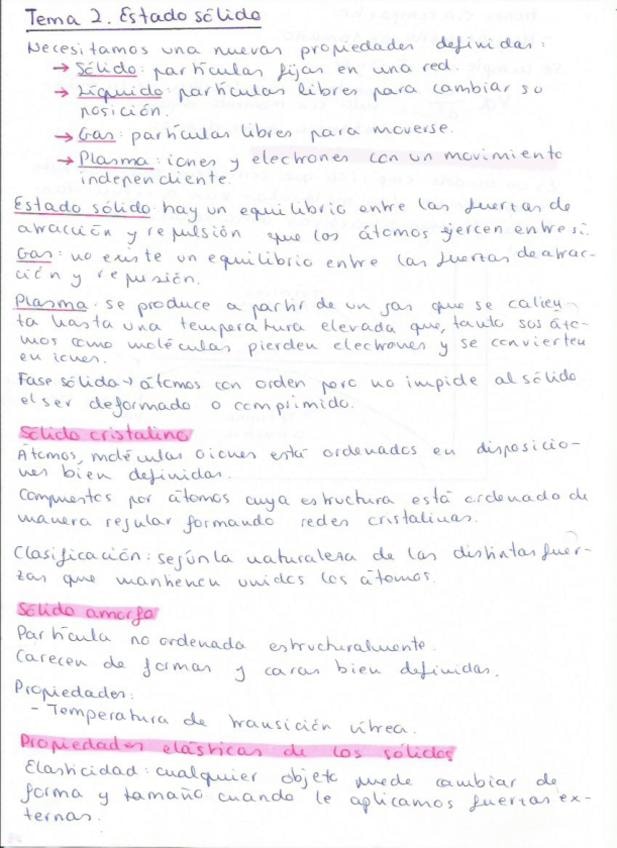 Tema 2. Estado sólido
Necesitamos una nuevas propiedades definidas:
→ Sólido: partículas fijas en una red.
→ Líquido: partículas libres para cambiar su
posición.
→ Gas: partículas libres para moverse.
→ Plasma: iones y electrones con un movimiento
independiente.
Estado sólido: hay un equilibrio entre las fuerzas de
atracción y repulsión que los átomos ejercen entre sí.
Gas: no existe un equilibrio entre las fuerzas de atrac-
ción y repusión.
Plasma: se produce a partir de un gas que se calien-
ta hasta una temperatura elevada que, tanto sos áto-
mos como moléculas pierden electrones y se convierten
en iones.
Fase sólida → átomos con orden pero no impide al sólido
el ser deformado o comprimido.
Sólido cristalino
Átomos, moléculas o iones está ordenados en disposicio-
nes bien definidas.
Compuestos por átomos cuya estructura está ordenado de
manera regular formando redes cristalinas.
Clasificación: según la naturaleza de las distintas fuer-
zas que mantienen unidos los átomos.
Sólido amorfo
Partícula no ordenada estructuralmente.
Carecen de formas y caras bien definidas.
Propiedades:
- Temperatura de transición vítrea.
Propiedades elásticas de los sólidos
Elasticidad: cualquier objeto puede cambiar de
forma y tamaño cuando le aplicamos fuerzas ex-
ternas.